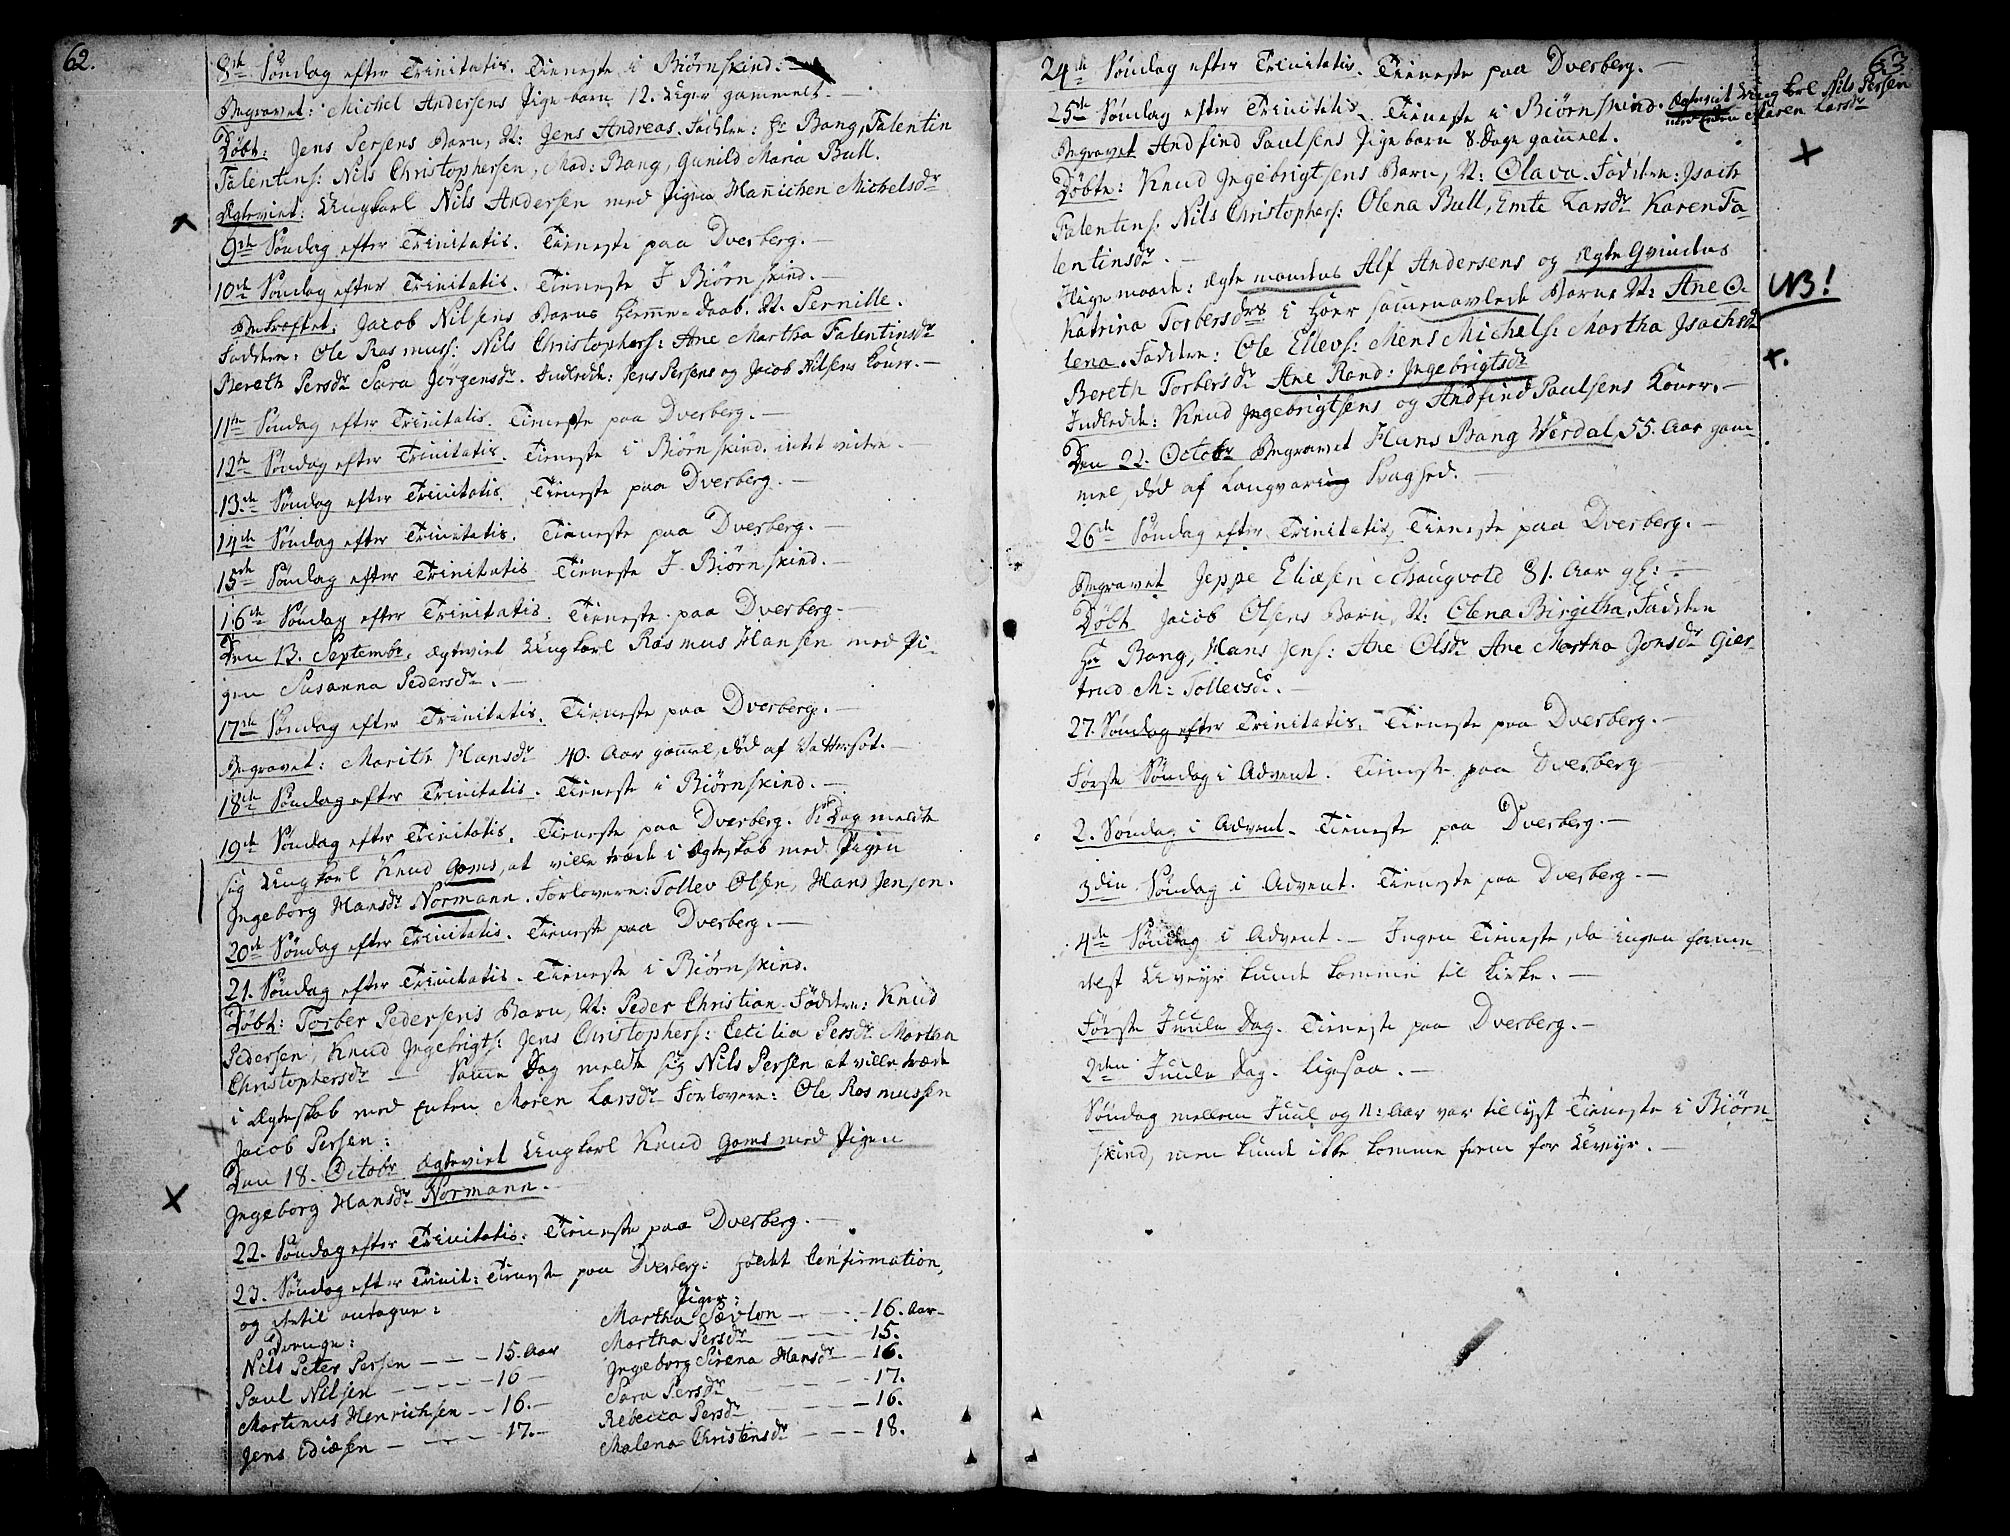 62.
8de Søndag efter Trinitatis. Tieneste i Biørnskind.
Begravet: Michel Andersens Pige-barn 12. Uger gammelt.
Døbt: Jens Persens Barn, N: Jens Andreas. Faddere: Hr Bang, Falentin
Falentins: Nils Christophersen, Mad: Bang, Gunild Maria Bull.
Ægteviet: Ungkarl Nils Andersen med Pigen Hanichen Michelsdr
9de Søndag efter Trinitatis. Tieneste paa Dverberg.
10de Søndag efter Trinitatis. Tieneste I Biørnskind.
Bekræftet: Jacob Nilsens Barns Hiemme-Daab. N: Pernille.
Faddere: Ole Rasmuss: Nils Christophers: Ane Martha Falentinsdr
Bereth Persdr Sara Jörgensdr. Indledde: Jens Persens og Jacob Nilsens Koner.
11te Søndag efter Trinitatis. Tieneste paa Dverberg.
12te Søndag efter Trinitatis. Tieneste i Biørnskind. intet videre.
13de Søndag efter Trinitatis. Tieneste paa Dverberg.
14de Søndag efter Trinitatis. Tieneste paa Dverberg.
15de Søndag efter Trinitatis Tieneste I Biørnskind.
16de Søndag efter Trinitatis. Tieneste paa Dverberg.
Den 13. Septembr. ægteviet Ungkarl Rasmus Hansen med Pi-
gen Susanna Pedersdr.
17de Søndag efter Trinitatis. Tieneste paa Dverberg.
Begravet: Marith Hansdr 40. Aar gamel, død af Vattersot.
18de Søndag efter Trinitatis. Tieneste i Biørnskind.
19de Søndag efter Trinitatis. Tieneste paa Dverberg. S: Dag meldte
sig Ungkarl Knud Goms, at ville træde i Ægteskab med Pigen
Ingeborg Hansdr Normann. Forlovere: Tollev Olsen, Hans Jensen.
20de Søndag efter Trinitatis. Tieneste paa Dverberg.
21. Søndag efter Trinitatis. Tieneste i Biørnskind.
Døbt: Torber Pedersens Barn, N: Peder Christian. Faddere: Knud
Pedersen, Knud Ingebrigts: Jens Christophers: Cecilia Persdr Martha
Christophersdr — Same Dag meldte sig Nils Persen at ville træde
i Ægteskab med Enken Maren Larsdr Forlovere: Ole Rasmussen
Jacob Persen:
Den 18. Octobr Ægteviet Ungkarl Knud Goms med Pigen
Ingeborg Hansdr Normann.
22. Søndag efter Trinitatis: Tieneste paa Dverberg.
23. Søndag efter Trinit: Tieneste paa Dverberg: holdt Confirmation,
og dertil antagne:
Drenge:
Nils Peter Persen — 15. Aar
Paul Nilsen — 16
Martinus Henrichsen — 16.
Jens Ediæsen — 17.
Piger:
Martha Sævlon — 16. Aar
Martha Persdr — 15.
Ingeborg Sirena Hansdr — 16.
Sara Persdr — 17.
Rebecca Persdr — 16.
Malena Christensdr — 18.
63
24de Søndag efter Trinitatis. Tieneste paa Dverberg.
25de Søndag efter Trinitatis. Tieneste i Biørnskind. Ægteviet Ungkarl Nils Persen
med Enken Maren Larsdr
Begravet Andfind Paulsens Pigebarn 8 Dage gamelt.
Døbte: Knud Ingebrigtsens Barn, N: Olava. Faddere: Isach
Falentins: Nils Christophers: Olena Bull, Emte Larsdr Karen Fa-
lentinsdr.
Ligemaade: ægte mandens Alf Andersens og ægte Qvindes
Katrina Torbersdrs i Hoer samenavlede Barn, N: Ane O-
lena. Faddere: Ole Ellevs: Mens Michels: Martha Isachsdr
Bereth Torbersdr Ane Rand: Ingebrigtsdr
NB!
Indledde: Knud Ingebrigtsens og Andfind Paulsens Koner.
Den 22. Octobr Begravet Hans Bang Werdal, 55. Aar gam-
mel, død af Langvarig Svaghed.
26de Søndag efter Trinitatis, Tieneste paa Dverberg.
Begravet Jeppe Eliæsen Schaugvold 81. Aar gl:
Døbt Jacob Olsens Barn, N: Olena Birgitha. Faddere
Hr Bang, Hans Jens: Ane Olsdr Ane Martha Jonsdr Gier-
trud M: Tollevsdr.
27. Søndag efter Trinitatis. Tieneste paa Dverberg.
Første Søndag i Advent. Tieneste paa Dverberg
2. Søndag i Advent. Tieneste paa Dverberg.
3die Søndag i Advent. Tieneste paa Dverberg.
4de Søndag i Advent. — Ingen Tieneste, da ingen forme-
delst Uveyr kunde komme til Kirke.
Første Juule Dag. Tieneste paa Dverberg.
2den Juule Dag. Ligesaa.
Søndag mellem Juul og N: Aar var tillyst Tieneste i Biørn-
skind, men kunde ikke komme frem for Uveyr.